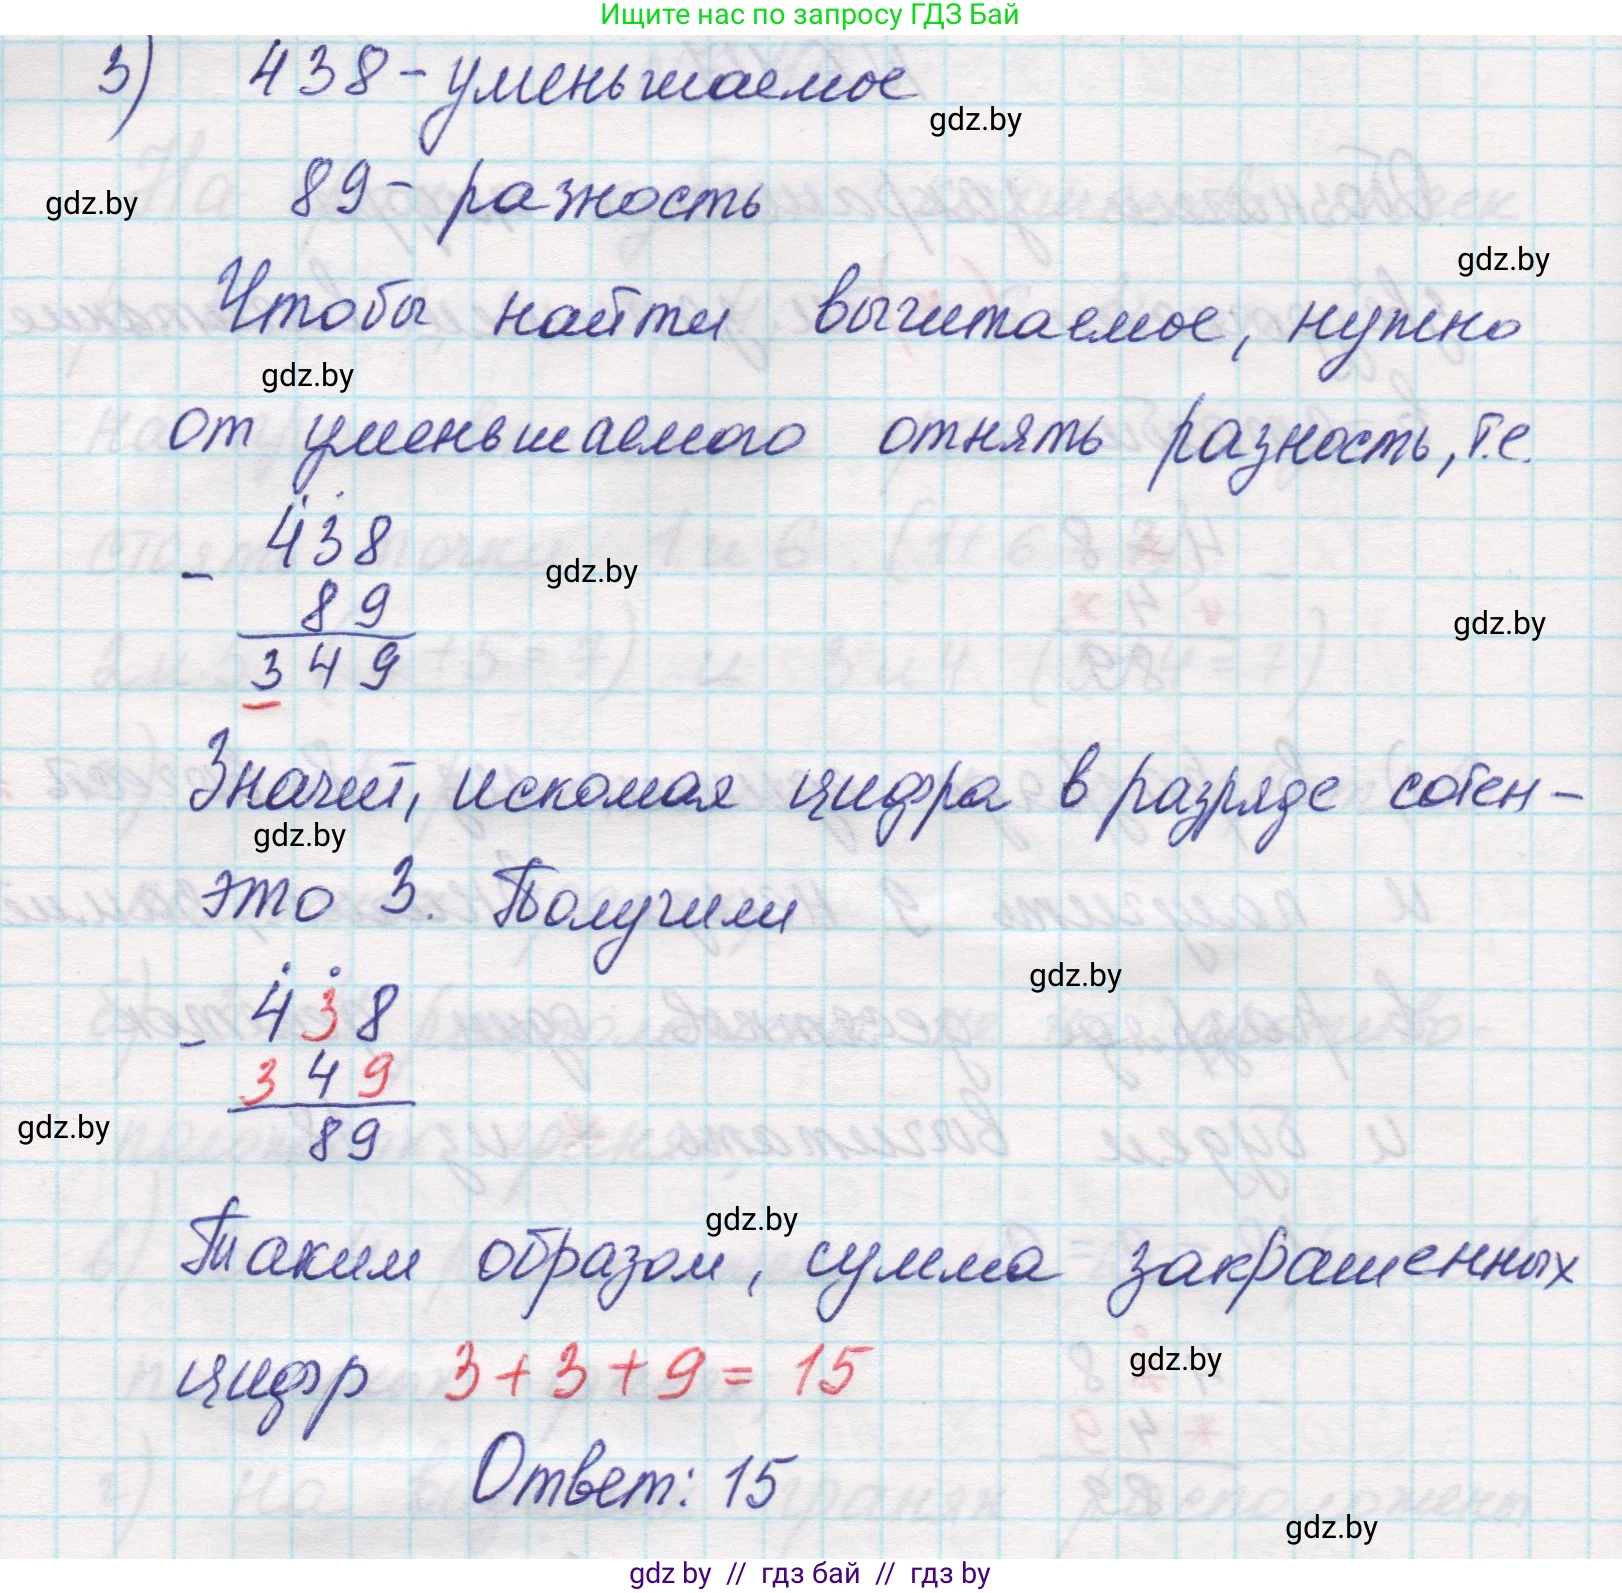 Ищите нас по запросу ГДЗ Бай
3) 438 - уменьшаемое
gdz.by
89 - разность
gdz.by
gdz.by
Чтобы найти вычитаемое, нужно
gdz.by
от уменьшаемого отнять разность, т.е.
438
gdz.by
- 89
gdz.by
349
Значит, искомая цифра в разряде сотен -
gdz.by
это 3. Получили
gdz.by
438
- 349
gdz.by
89
gdz.by
Таким образом, сумма закрашенных
цифр 3 + 3 + 9 = 15
gdz.by
Ответ: 15
gdz.by
gdz by // гдз бай // гдз by